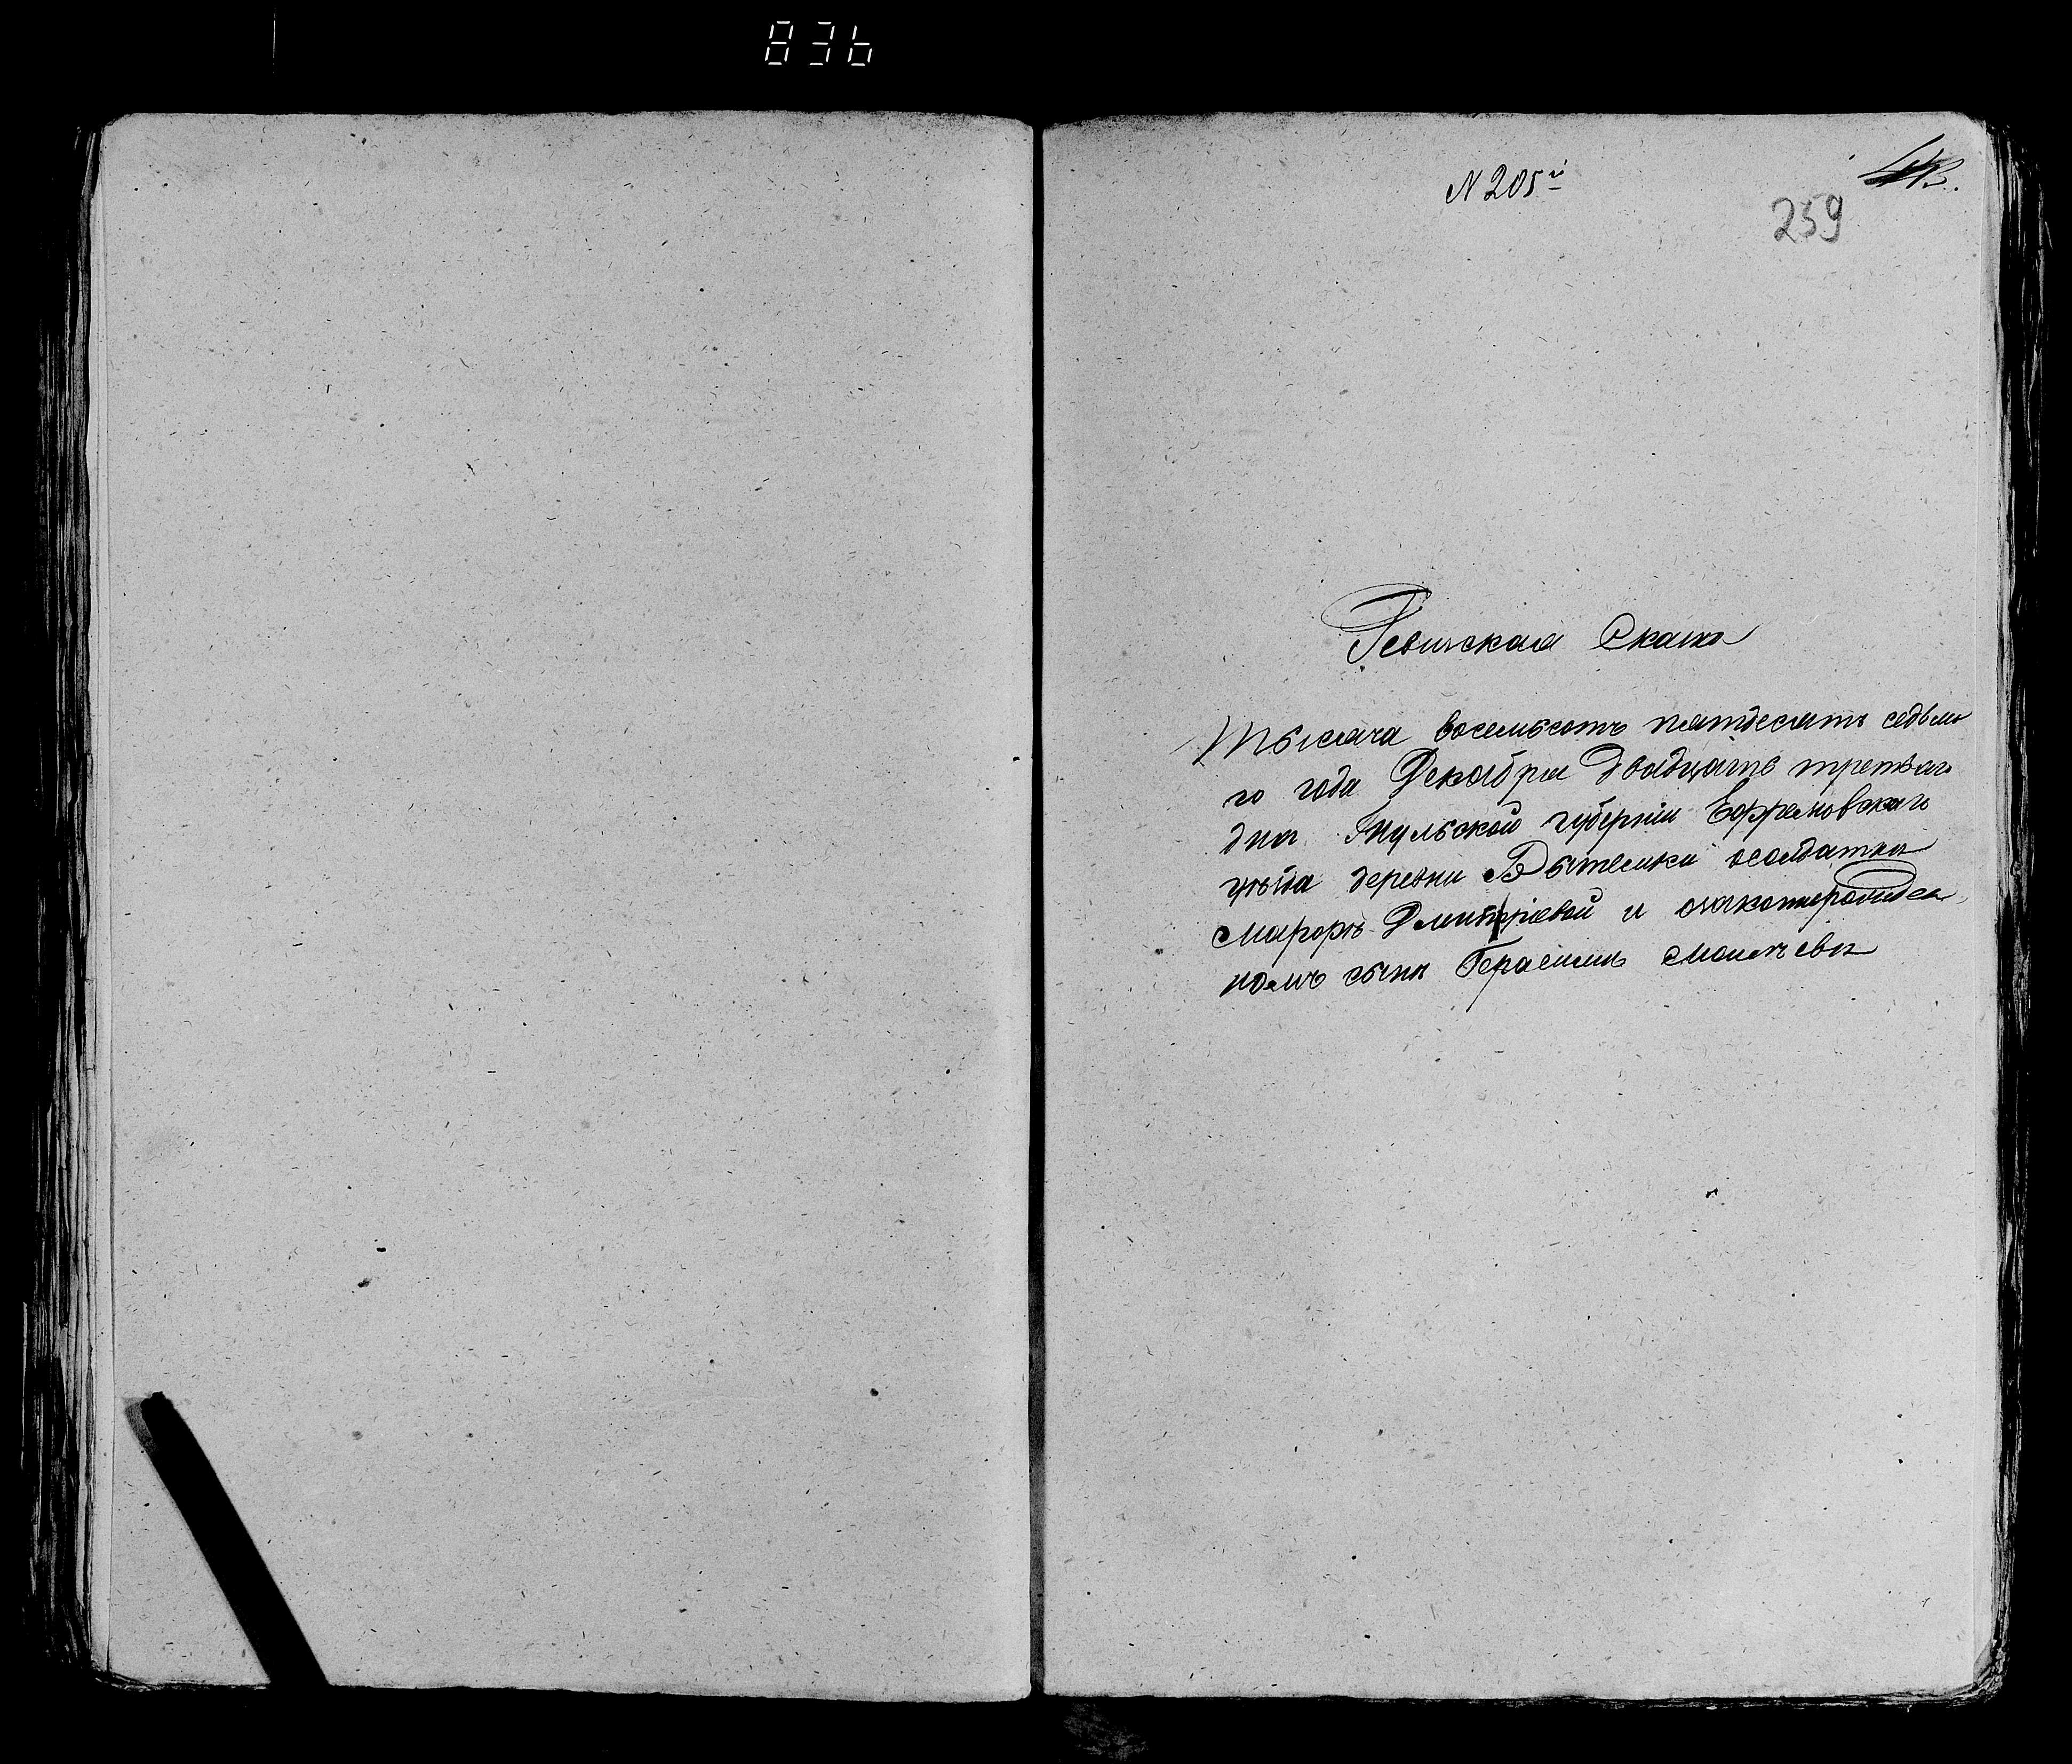 836
N 205й
259
Ревизская Сказка
Тысяча восемьсотъ пятдесятъ седьма
го года Декабря двадцать третьяго
дня Тульской губерніи Ефремовскаго
уѣзда деревни солдатки
Марфѣ Дмитріевой и
номъ сынѣ Герасимѣ